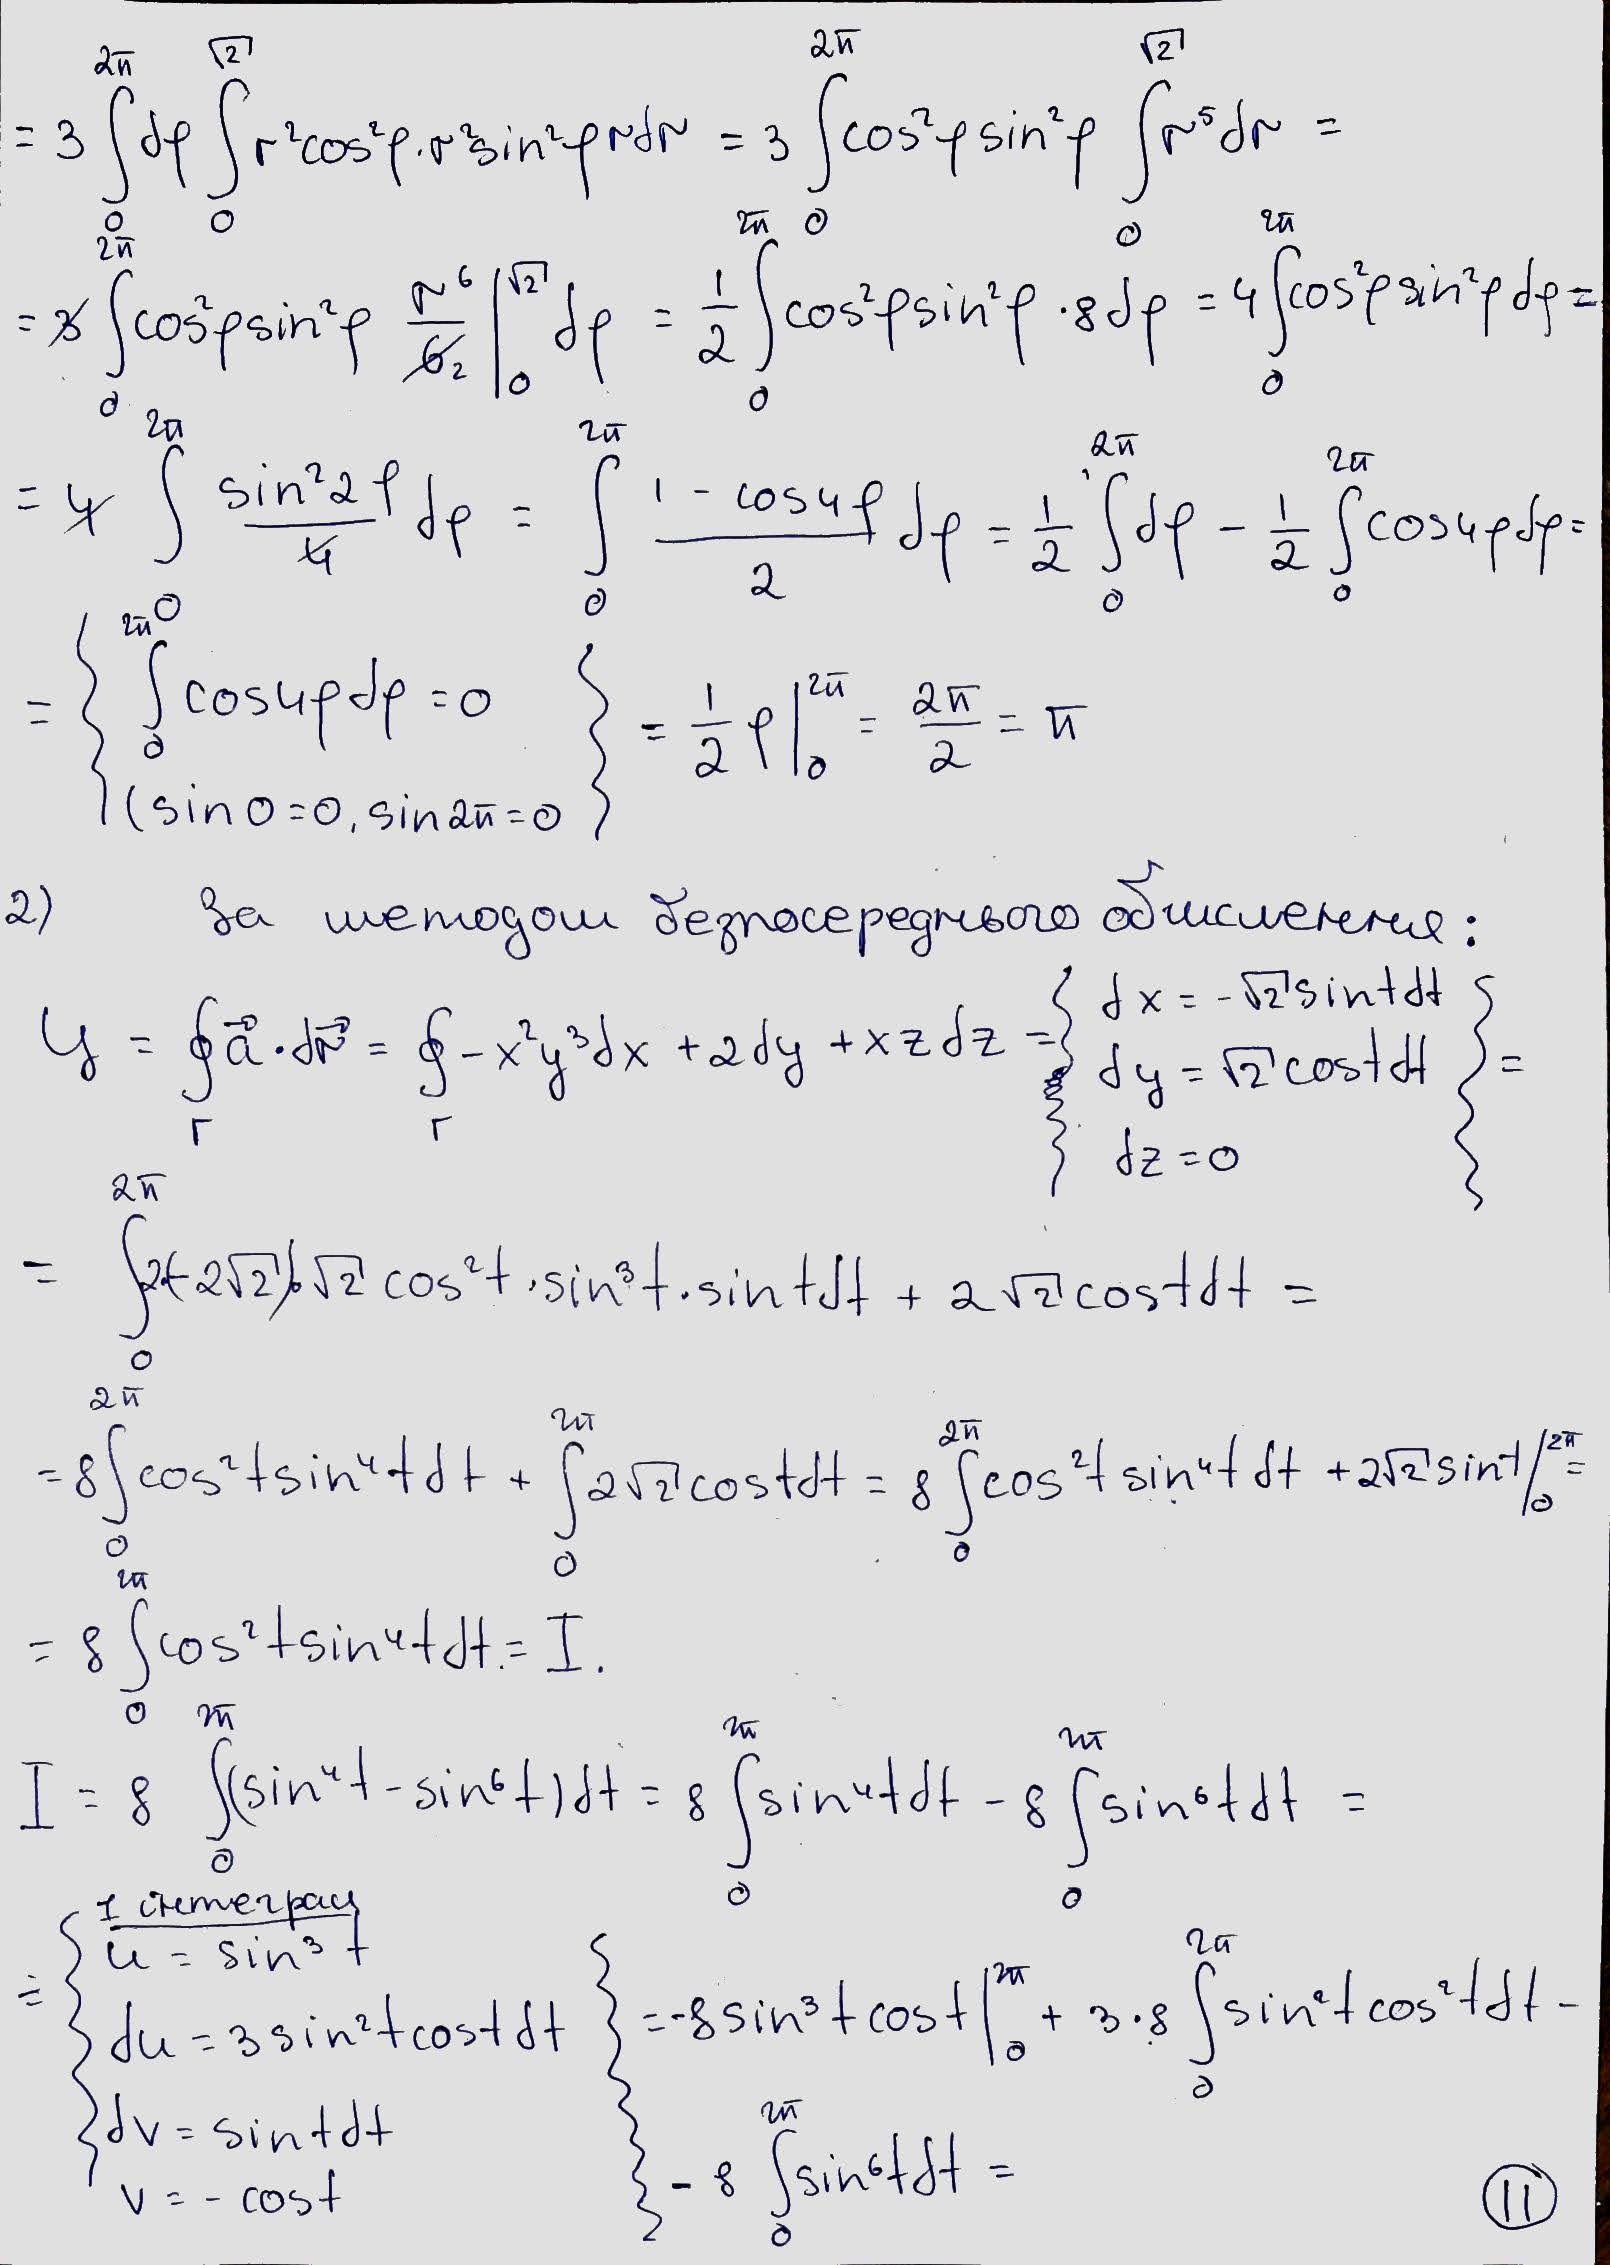 = 3 ∫₀^{2π} dφ ∫₀^{√2} r²cos²φ·r²sin²φ r dr = 3 ∫₀^{2π} cos²φ sin²φ ∫₀^{√2} r⁵dr =
= 3 ∫₀^{2π} cos²φ sin²φ r⁶/6₂ |₀^{√2} dφ = 1/2 ∫₀^{2π} cos²φ sin²φ · 8dφ = 4 ∫₀^{2π} cos²φ sin²φ dφ =
= 4 ∫₀^{2π} sin²2φ/4 dφ = ∫₀^{2π} (1 - cos4φ)/2 dφ = 1/2 ∫₀^{2π} dφ - 1/2 ∫₀^{2π} cos4φdφ =
= { ∫₀^{2π} cos4φdφ = 0
(sin0=0, sin2π=0 } = 1/2 φ |₀^{2π} = 2π/2 = π
2) За методом безпосереднього обчислення:
Ц = ∮_Γ a⃗·dr⃗ = ∮_Γ -x²y³dx + 2dy + xzdz = { dx = -√2 sintdt
dy = √2 costdt
dz = 0 } =
= ∫₀^{2π} 2(-2√2)·√2 cos²t·sin³t·sintdt + 2√2 costdt =
= 8∫₀^{2π} cos²tsin⁴tdt + ∫₀^{2π} 2√2 costdt = 8 ∫₀^{2π} cos²t sin⁴t dt + 2√2 sint |₀^{2π} =
= 8 ∫₀^{2π} cos²tsin⁴tdt = I.
I = 8 ∫₀^{2π} (sin⁴t - sin⁶t)dt = 8 ∫₀^{2π} sin⁴tdt - 8 ∫₀^{2π} sin⁶tdt =
I інтеграл
= { u = sin³t
du = 3sin²tcostdt
dv = sintdt
v = -cost } = -8sin³tcost |₀^{2π} + 3·8 ∫₀^{2π} sin²tcos²tdt -
- 8 ∫₀^{2π} sin⁶tdt =
11